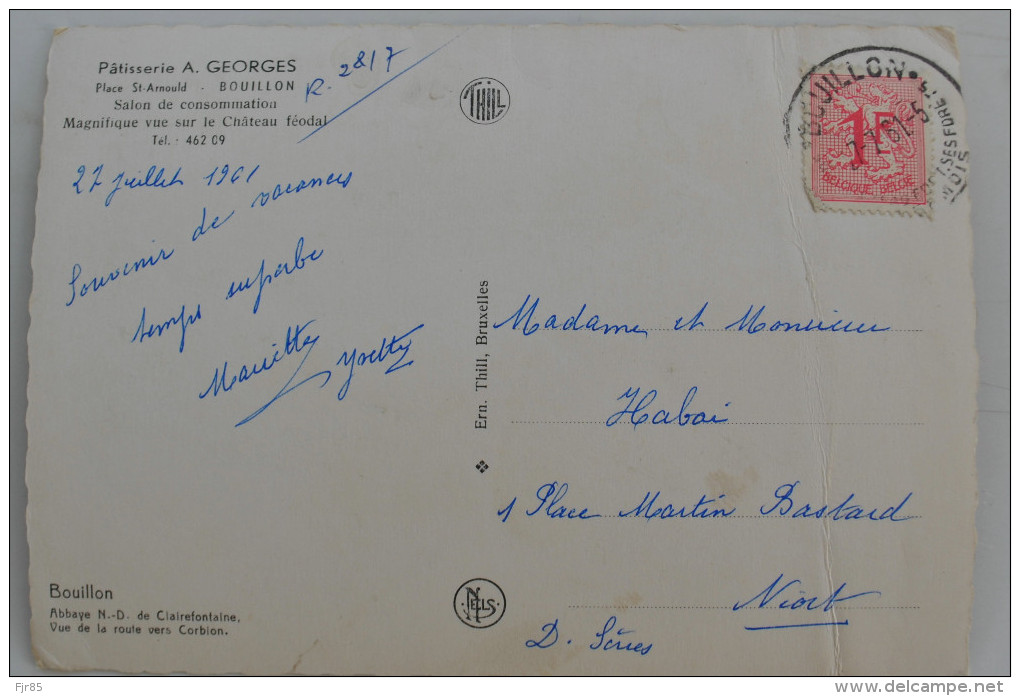 Pâtisserie A. GEORGES
Place St-Arnould - BOUILLON
Salon de consommation
Magnifique vue sur le Château féodal
Tél. : 462 09
R. 2817
THILL
BOUILLON
1F
BELGIQUE-BELGIE
27 juillet 1961
Souvenir de vacances
temps superbe
Mariette Yvette
Ern. Thill, Bruxelles
Madame et Monsieur
Habai
1 Place Martin Bastard
Niort
D. Sèvres
Bouillon
Abbaye N.-D. de Clairefontaine,
Vue de la route vers Corbion.
NELS
Fjr85
www.delcampe.net